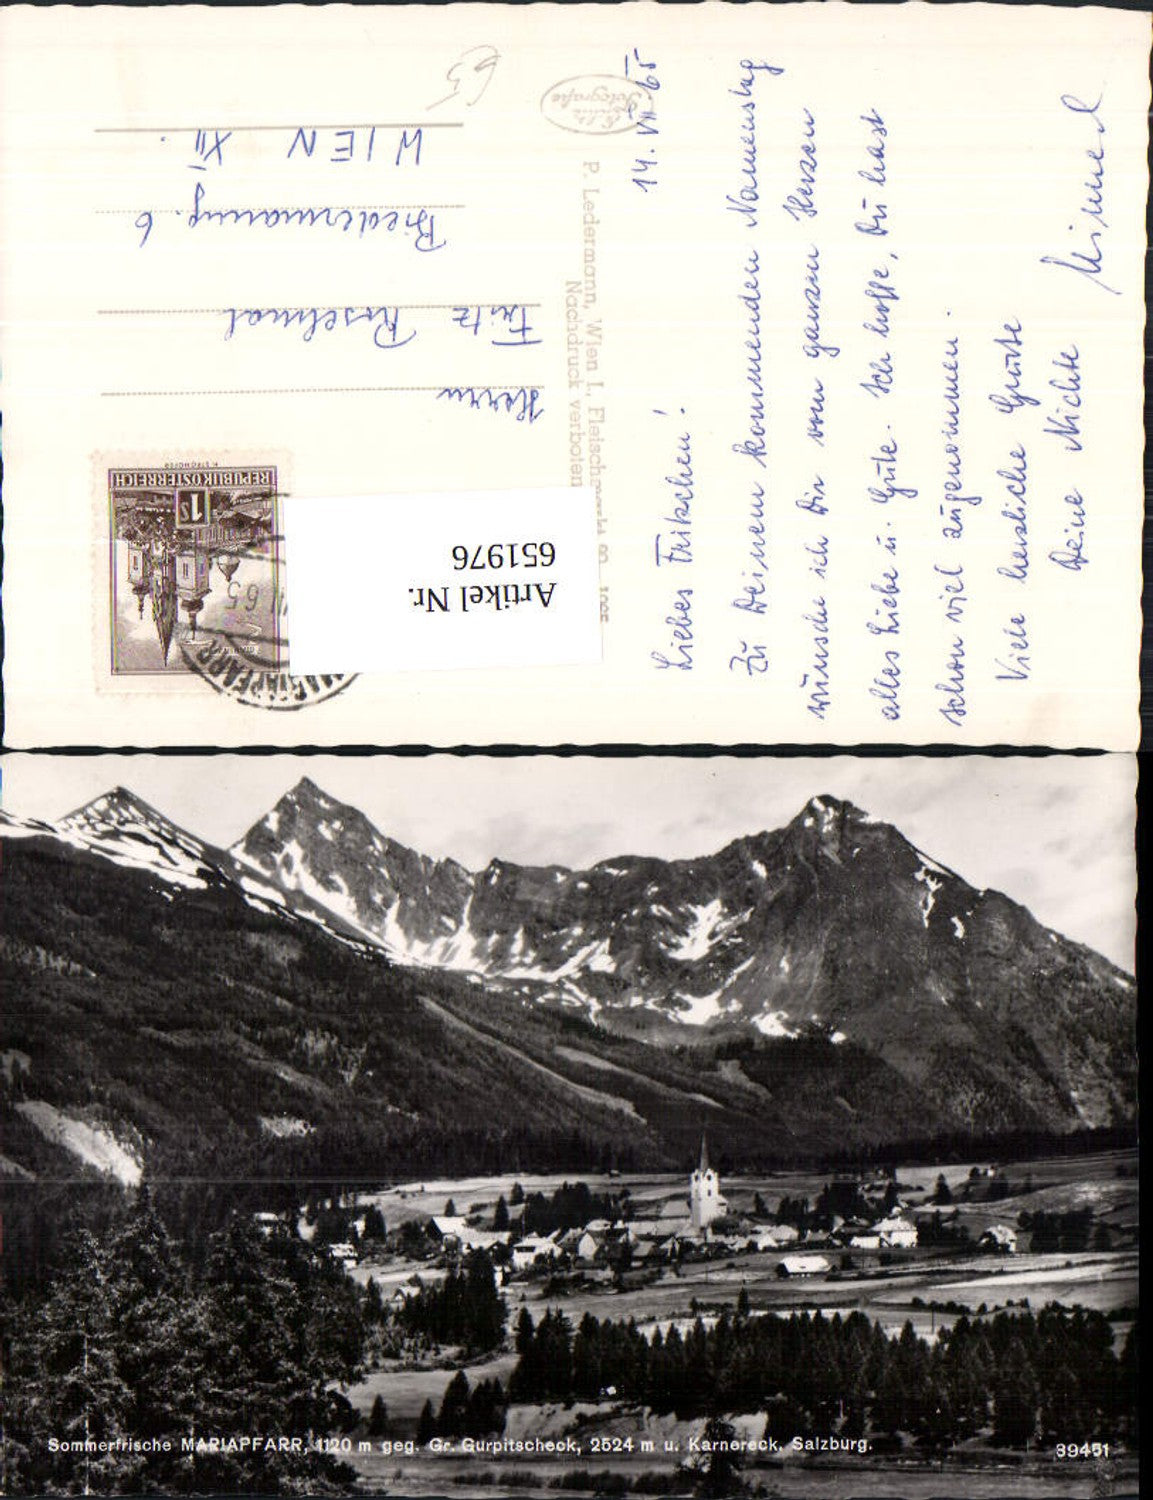 14. VII. 65
Liebes Fritzchen!
Zu Deinem kommenden Namenstag
wünsche ich Dir vom ganzen Herzen
alles Liebe u. Gute. Ich hoffe, Du hast
schon viel zugenommen.
Viele herzliche Grüße
Deine Nichte
P. Ledermann, Wien I., Fleischm
Nachdruck verboten
REPUBLIK ÖSTERREICH
1S
MARIAPFARR
65
Artikel Nr.
651976
Herrn
Fritz
Biedermanng. 6
WIEN XII.
65
Sommerfrische MARIAPFARR, 1120 m geg. Gr. Gurpitscheck, 2524 m u. Karnereck, Salzburg.
39451